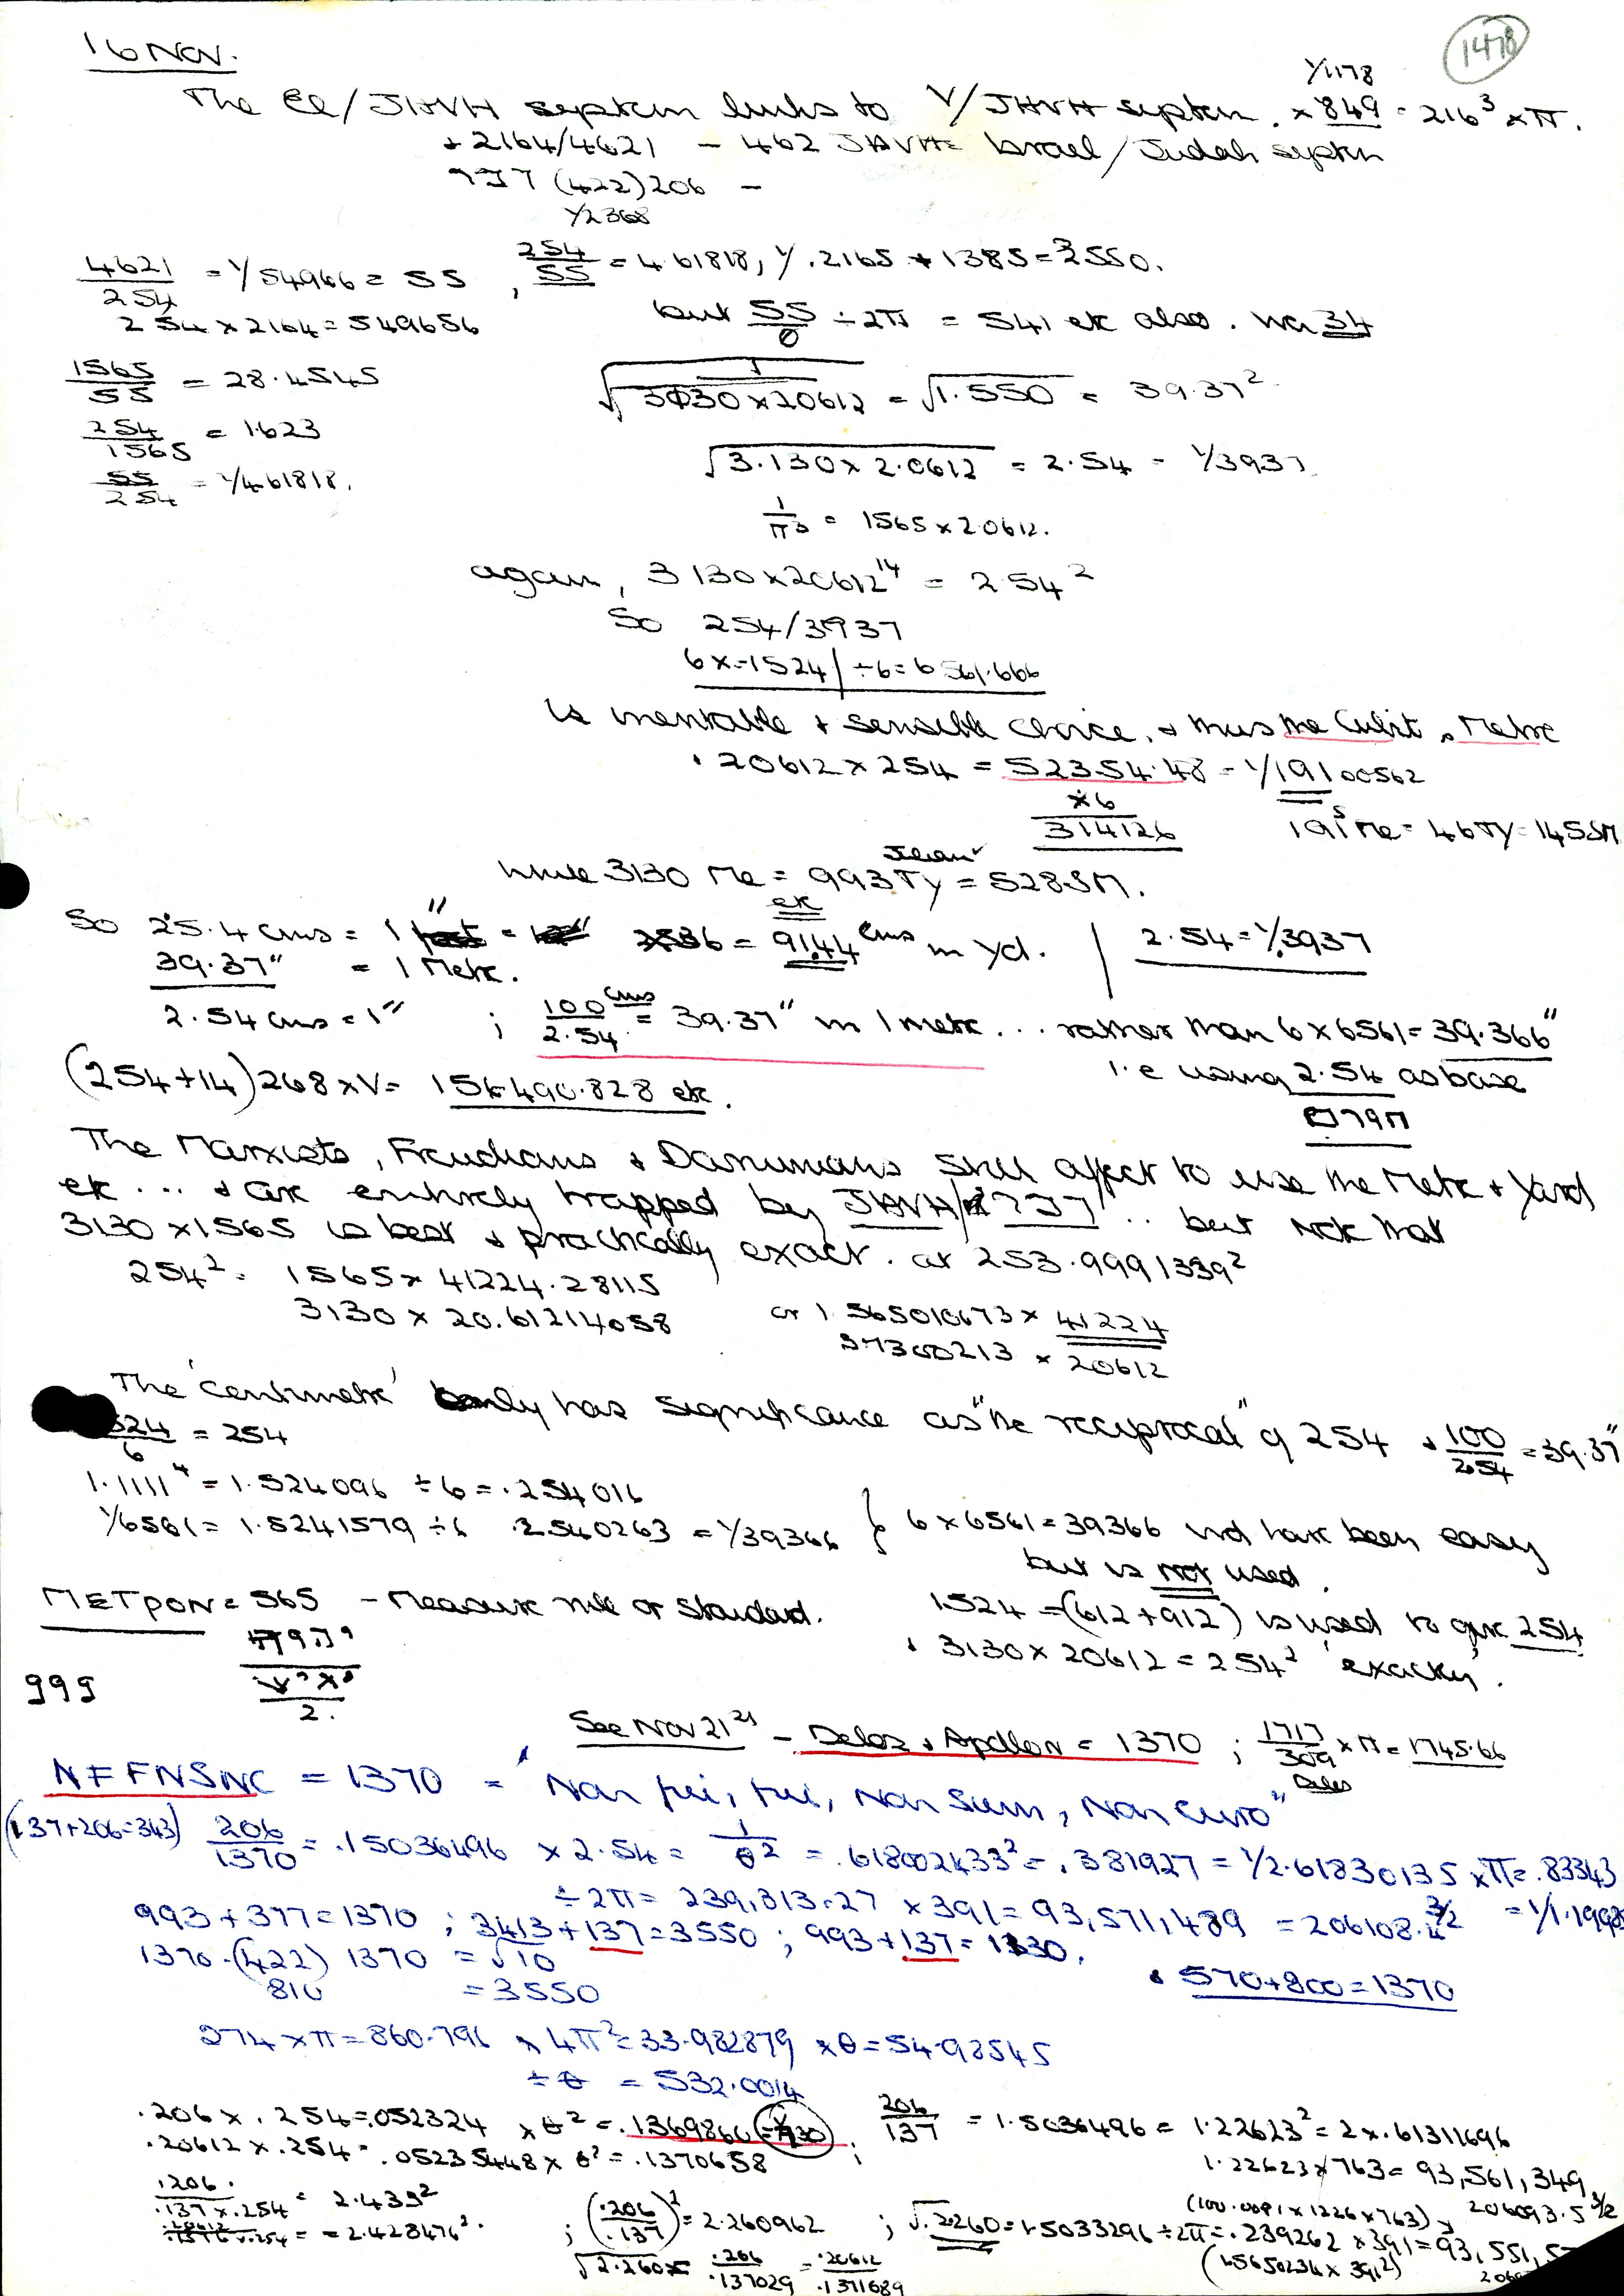 16 Nov.
1478
1/1178
The El/JHVH septen links to Y/JHVH septen. × 849 = 216³ × π.
+ 2164/4621 – 462 JHVH = Israel/Judah septen
(422) 206 –
1/2368
4621/254 = 1/54966 = 55 , 254/55 = 4.61818, 1/.2165 + 1385 = 3550.
254 × 2164 = 549656
but 55/θ ÷ 2π = 541 etc also. 34
1565/55 = 28.4545
√1/3130 × 20612 = √1.550 = 39.37²
254/1565 = 1.623
√3.130 × 2.0612 = 2.54 = 1/3937
55/254 = 1/4.61818.
1/π³ = 1565 × 20612.
again, 3130 × 20612¹⁴ = 254²
So 254/3937
6 × = 1524 / ÷ 6 = 6561.666
is inevitable + sensible choice, + thus the Cubit, Metre
.20612 × 254 = 52354.48 = 1/19100562
× 6
314126
191⁵ Me = 46 Ty = 145 SM
while 3130 Me = 993 Ty = 528 SM.
etc
So 25.4 cms = 1" = × 36 = 91.44 cms in yd. / 2.54 = 1/.3937
39.37" = 1 Metre.
2.54 cms = 1" ; 100 cms/2.54 = 39.37" in 1 metre... rather than 6 × 6561 = 39.366"
i.e using 2.54 as base
(254 + 14) 268 × V = 156.490.828 etc.
The Marxists, Freudians & Darwinians still affect to use the Metre + Yard
etc ... & are entirely trapped by JHVH / .. but note that
3130 × 1565 is best & practically exact. at 253.9991339²
254² = 1565 × 41224.28115
3130 × 20.61214058 or 1.565010673 × 41224
37300213 × 20612
The 'centimetre' only has significance as "the reciprocal" of 254 + 100/254 = 39.37"
524/6 = 254
1.1111⁴ = 1.524096 ÷ 6 = .254016
1/6561 = 1.5241579 ÷ 6 .2540263 = 1/39366 } 6 × 6561 = 39366 wd have been easy
but is not used.
METPON = 565 – Measure rule or standard. 1524 = (612 + 912) is used to give 254
+ 3130 × 20612 = 254² 'exactly'.
999
2.
See Nov 21 – Delos + Apollon = 1370 ; 1717/309 × π = 1745.66
Delos
NFFNSNC = 1370 = "Non fui, fui, Non Sum, Non Curo"
(137 + 206 = 343) 206/1370 = .15036496 × 2.54 = 1/θ² = .618002433² = .381927 = 1/2.61830135 × π = .83343
÷ 2π = 239,313.27 × 391 = 93,571,489 = 206108.4 3/2 = 1/1.1998
993 + 377 = 1370 ; 3413 + 137 = 3550 ; 993 + 137 = 1130.
1370 . (422) 1370 = √10
810 = 3550
+ 570 + 800 = 1370
274 × π = 860.796 × 4π² = 33.982879 × θ = 54.98545
÷ θ = 532.0014
.206 × .254 = .052324 × θ² = .1369860 = 1/730 ; 206/137 = 1.5036496 = 1.22623² = 2 × .61311696
.20612 × .254 = .05235448 × θ² = .1370658 ; 1.22623 × 763 = 93,561,349
.206/.137 × .254 = 2.439² (100.0091 × 1226 × 763) 206093.5 3/2
= 2.428476². ; (.206/.137)² = 2.260962 ; √2.260 = 1.5033296 ÷ 2π = .239262 × 391 = 93,551,5
√2.260 = .206/.137029 = .20612/.1371689 (1.5650234 × 391²)